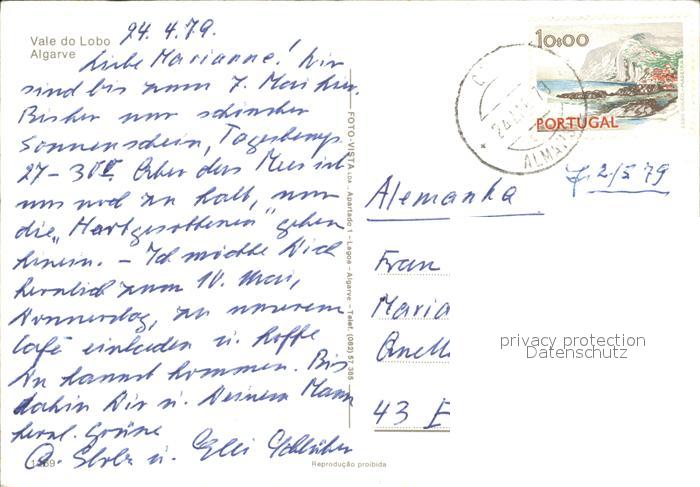 24. 4. 79.
Vale do Lobo
Algarve
Liebe Marianne! Wir
sind bis zum 7. Mai hier.
Bisher nur schönster
Sonnenschein, Tagestemp.
27-30°. Aber das Meer ist
uns noch zu kalt, nur
die "Hartgesottenen" gehen
hinein. - Ich möchte Dich
herzlich zum 10. Mai,
Donnerstag, zu unserem
Café einladen u. hoffe
Du kannst kommen. Bis
dahin Dir u. Deinem Mann
herzl. Grüße
u. Elli
1169
FOTO-VISTA LDA., Apartado 1 - Lagoa - Algarve - Telef. (082) 57 365
Reprodução proibida
10$00
PORTUGAL
24
79
ALMAN
2/5 79
Alemanha
Frau
Maria
43
privacy protection
Datenschutz